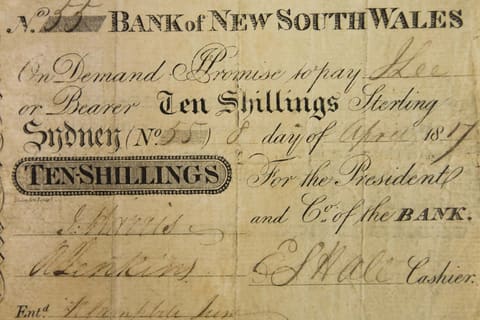 No. 55 BANK of NEW SOUTH WALES
On Demand I Promise to pay J Lee
or Bearer Ten Shillings Sterling
Sydney (No. 55) 8 day of April 1817
TEN SHILLINGS For the President
and Co. of the BANK.
J. Harris
R Jenkins E S Hall Cashier.
Entd.